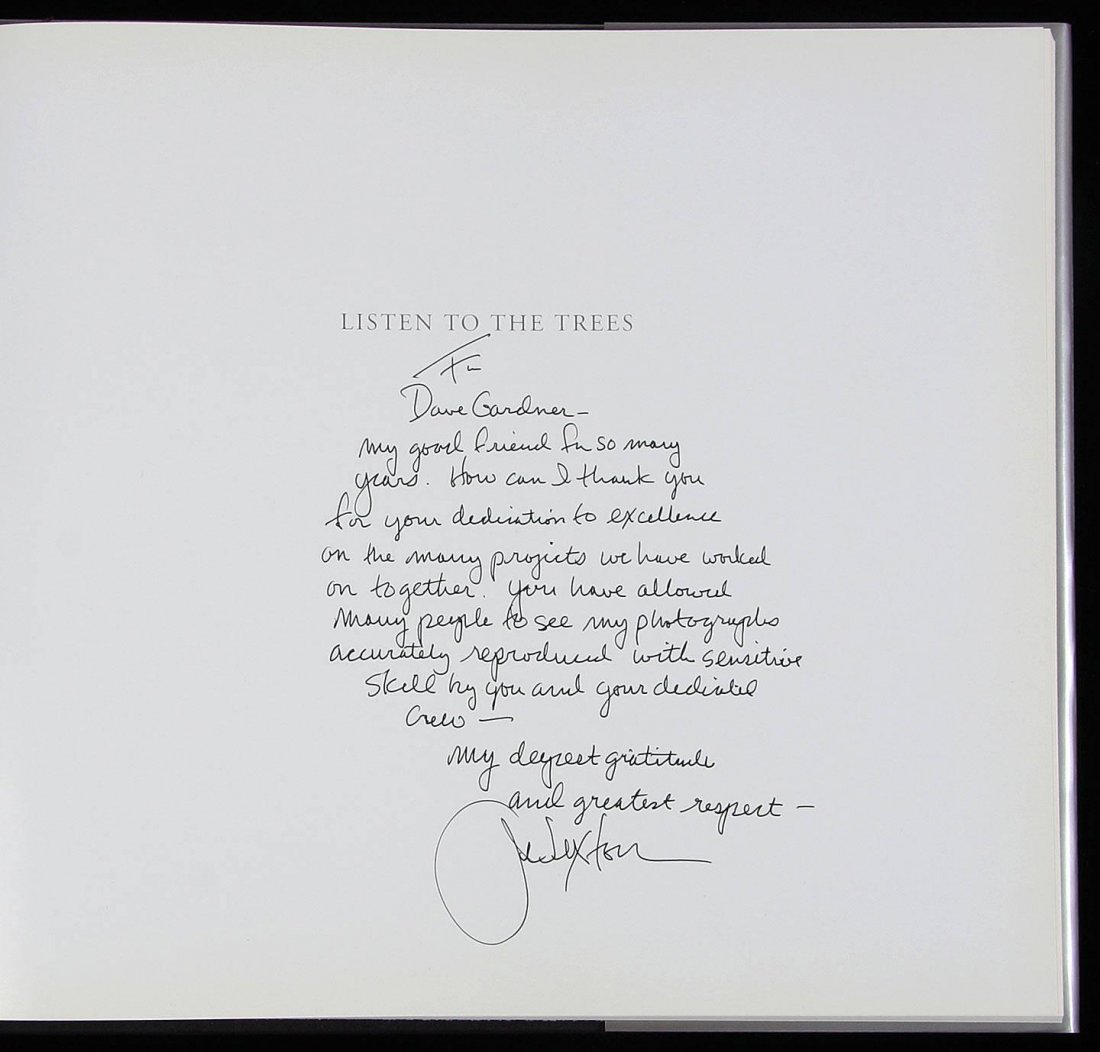 LISTEN TO THE TREES
For
Dave Gardner –
my good friend for so many
years. How can I thank you
for your dedication to excellence
on the many projects we have worked
on together. You have allowed
many people to see my photographs
accurately reproduced with sensitive
skill by you and your dedicated
crew —
my deepest gratitude
and greatest respect –
John Sexton